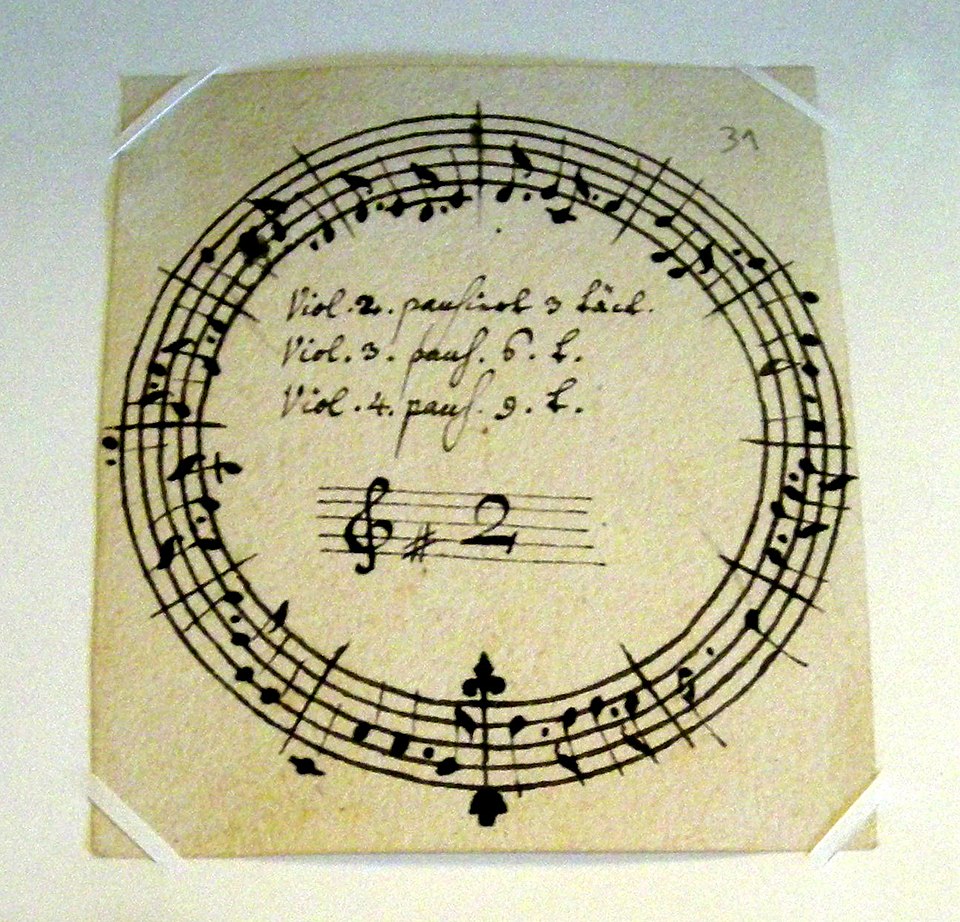 31
Viol. 2. pausiert 3 täct.
Viol. 3. paus. 6. t.
Viol. 4. paus. 9. t.
2